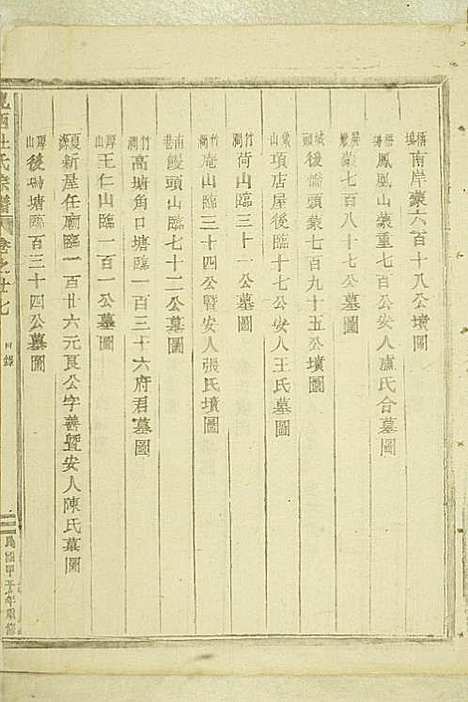 南岸蒙六百十八公墳圖
鳳凰山蒙重七百公安人盧氏合墓圖
蒙七百八十七公墓圖
後橋頭蒙七百九十五公墳圖
項店屋後臨十七公安人王氏墓圖
竹澗 荷山臨三十一公墓圖
竹澗 庵山臨三十四公暨安人張氏墳圖
南巷 饅頭山臨七十二公墓圖
竹澗 高塘角口塘臨一百三十六府君墓圖
潭山 王仁山臨一百一公墓圖
夏源 新屋任廟臨一百廿六元良公字善暨安人陳氏墓圖
潭山 後塢塘臨一百三十四公墓圖
西杜氏宗譜 卷之廿七 目錄 民國甲子年重修